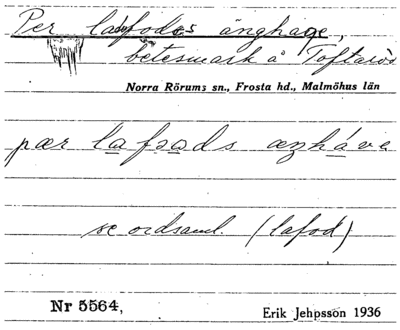 Per lassfodes änghage,
betesmark å Toftarö
Norra Rörums sn., Frosta hd., Malmöhus län
pær lafoads æŋháve
se ordsaml. (lafod)
Nr 5564,
Erik Jehpsson 1936